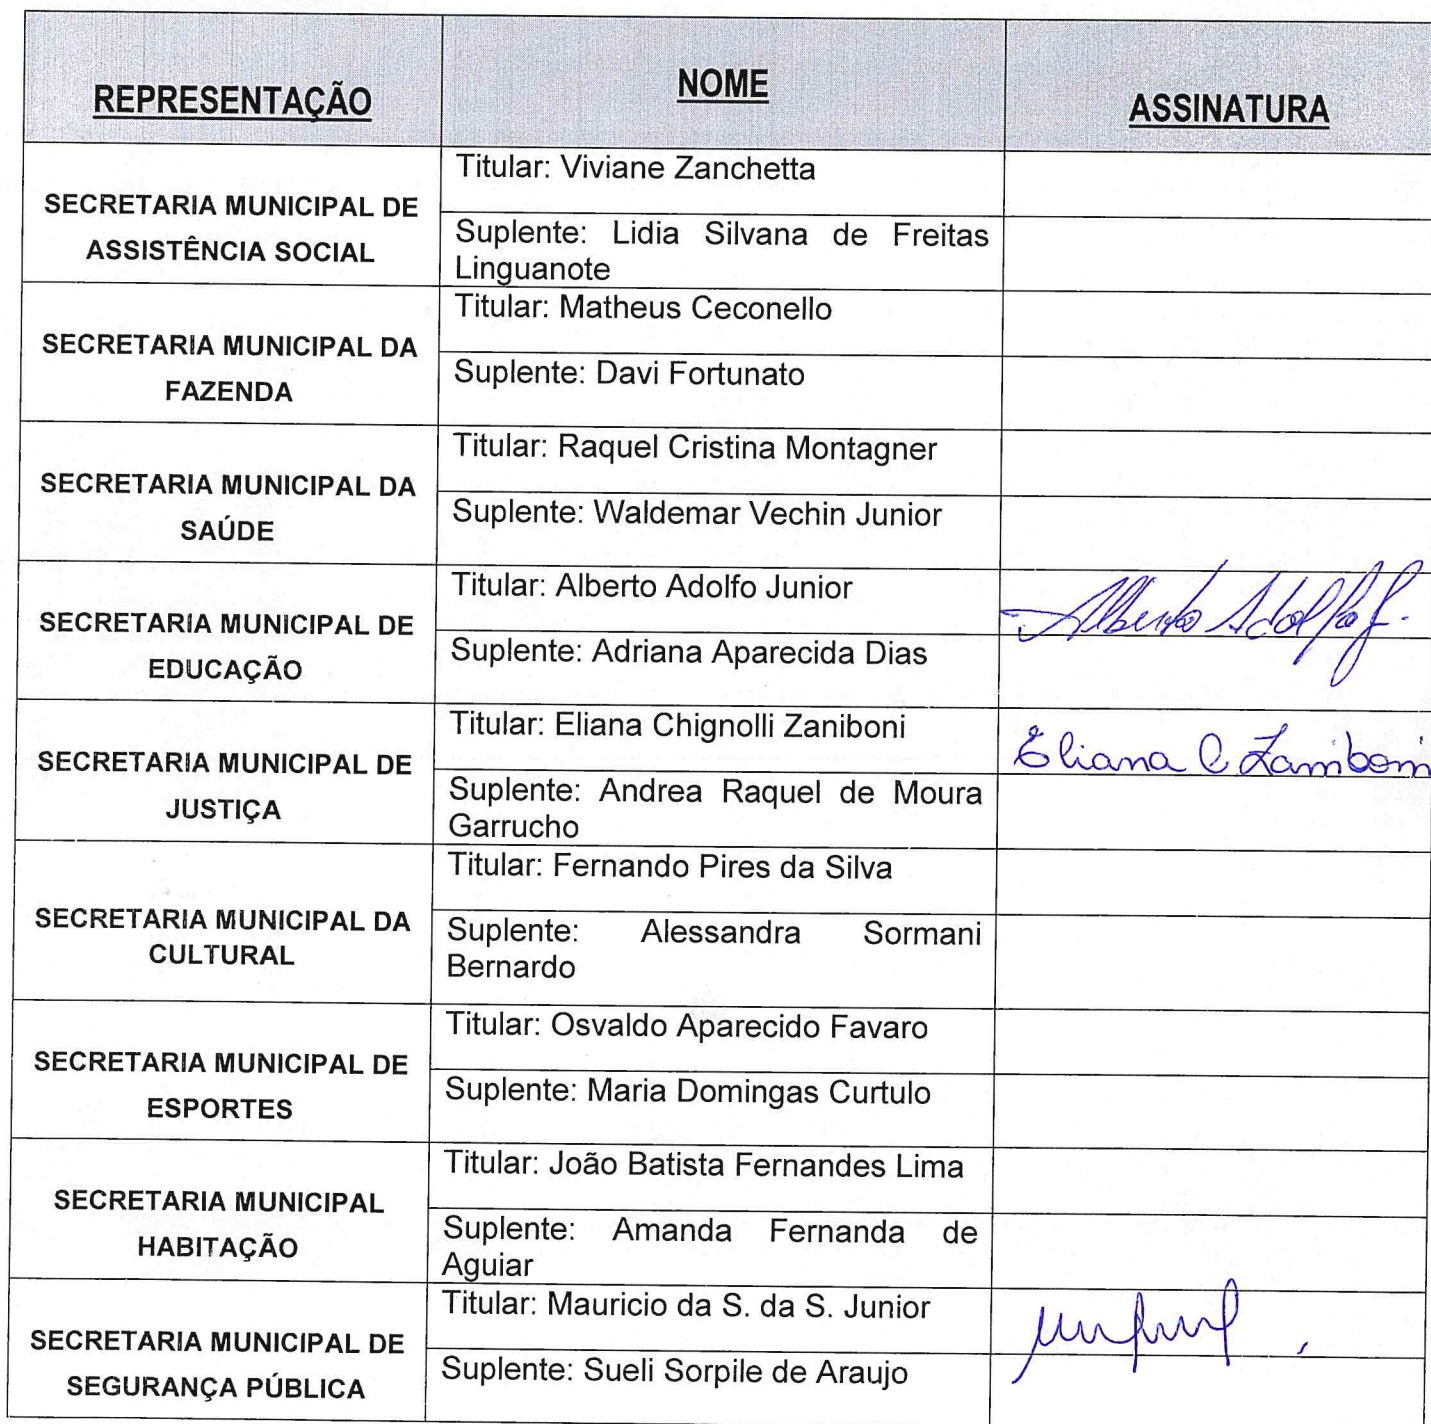 REPRESENTAÇÃO
NOME
ASSINATURA
SECRETARIA MUNICIPAL DE
ASSISTÊNCIA SOCIAL
Titular: Viviane Zanchetta
Suplente: Lidia Silvana de Freitas
Linguanote
SECRETARIA MUNICIPAL DA
FAZENDA
Titular: Matheus Ceconello
Suplente: Davi Fortunato
SECRETARIA MUNICIPAL DA
SAÚDE
Titular: Raquel Cristina Montagner
Suplente: Waldemar Vechin Junior
SECRETARIA MUNICIPAL DE
EDUCAÇÃO
Titular: Alberto Adolfo Junior
Alberto Adolfo J.
Suplente: Adriana Aparecida Dias
SECRETARIA MUNICIPAL DE
JUSTIÇA
Titular: Eliana Chignolli Zaniboni
Eliana C Zaniboni
Suplente: Andrea Raquel de Moura
Garrucho
SECRETARIA MUNICIPAL DA
CULTURAL
Titular: Fernando Pires da Silva
Suplente: Alessandra Sormani
Bernardo
SECRETARIA MUNICIPAL DE
ESPORTES
Titular: Osvaldo Aparecido Favaro
Suplente: Maria Domingas Curtulo
SECRETARIA MUNICIPAL
HABITAÇÃO
Titular: João Batista Fernandes Lima
Suplente: Amanda Fernanda de
Aguiar
SECRETARIA MUNICIPAL DE
SEGURANÇA PÚBLICA
Titular: Mauricio da S. da S. Junior
Suplente: Sueli Sorpile de Araujo